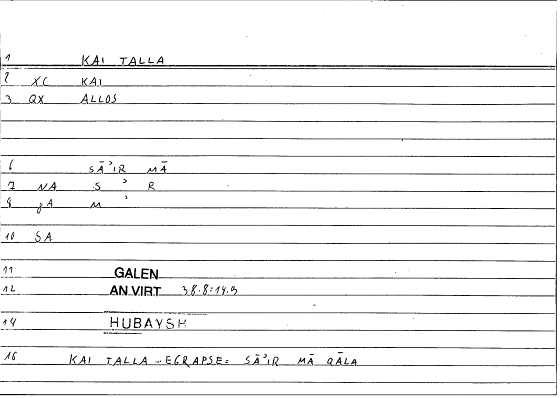 1 KAI TALLA
2 XC KAI
3 QX ALLOS
6 SĀʾIR MĀ
7 NA S ʾ R
8 γA M ʾ
10 SA
11 GALEN
12 AN.VIRT 38.8=14.9
14 HUBAYSH
16 KAI TALLA - EGRAPSE = SĀʾIR MĀ QĀLA